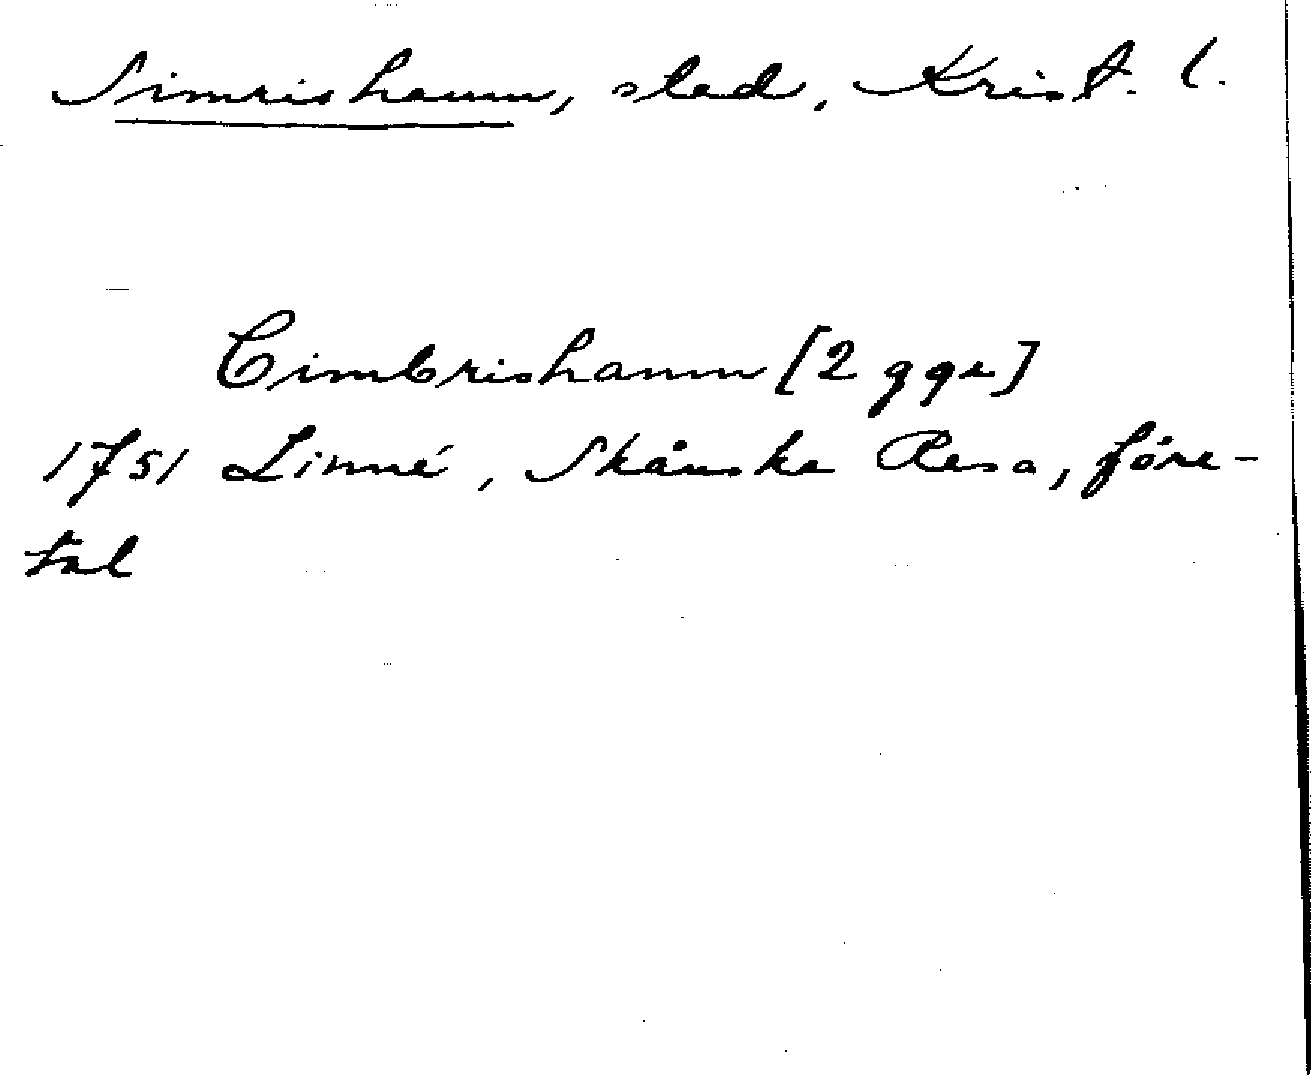 Simrishamn, stad, Krist. l.
Cimbrishamn [2 ggr]
1751 Linné, Skånska Resa, före-
tal